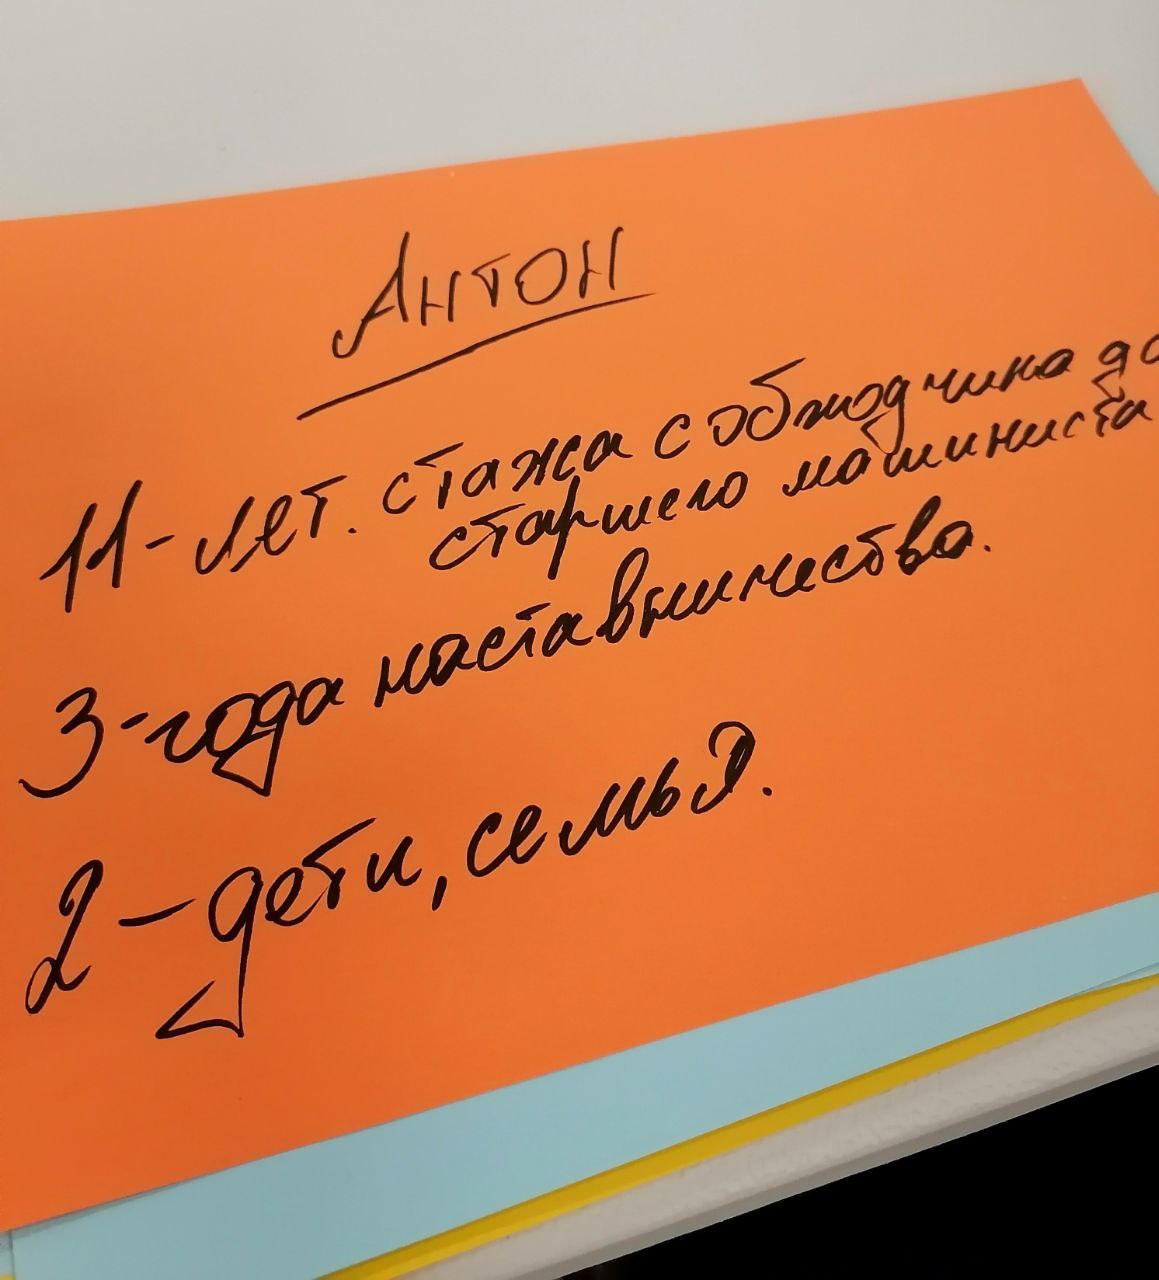 Антон
11-лет. стажа с обходчика до
старшего машиниста
3-года наставничества.
2-дети, семья.